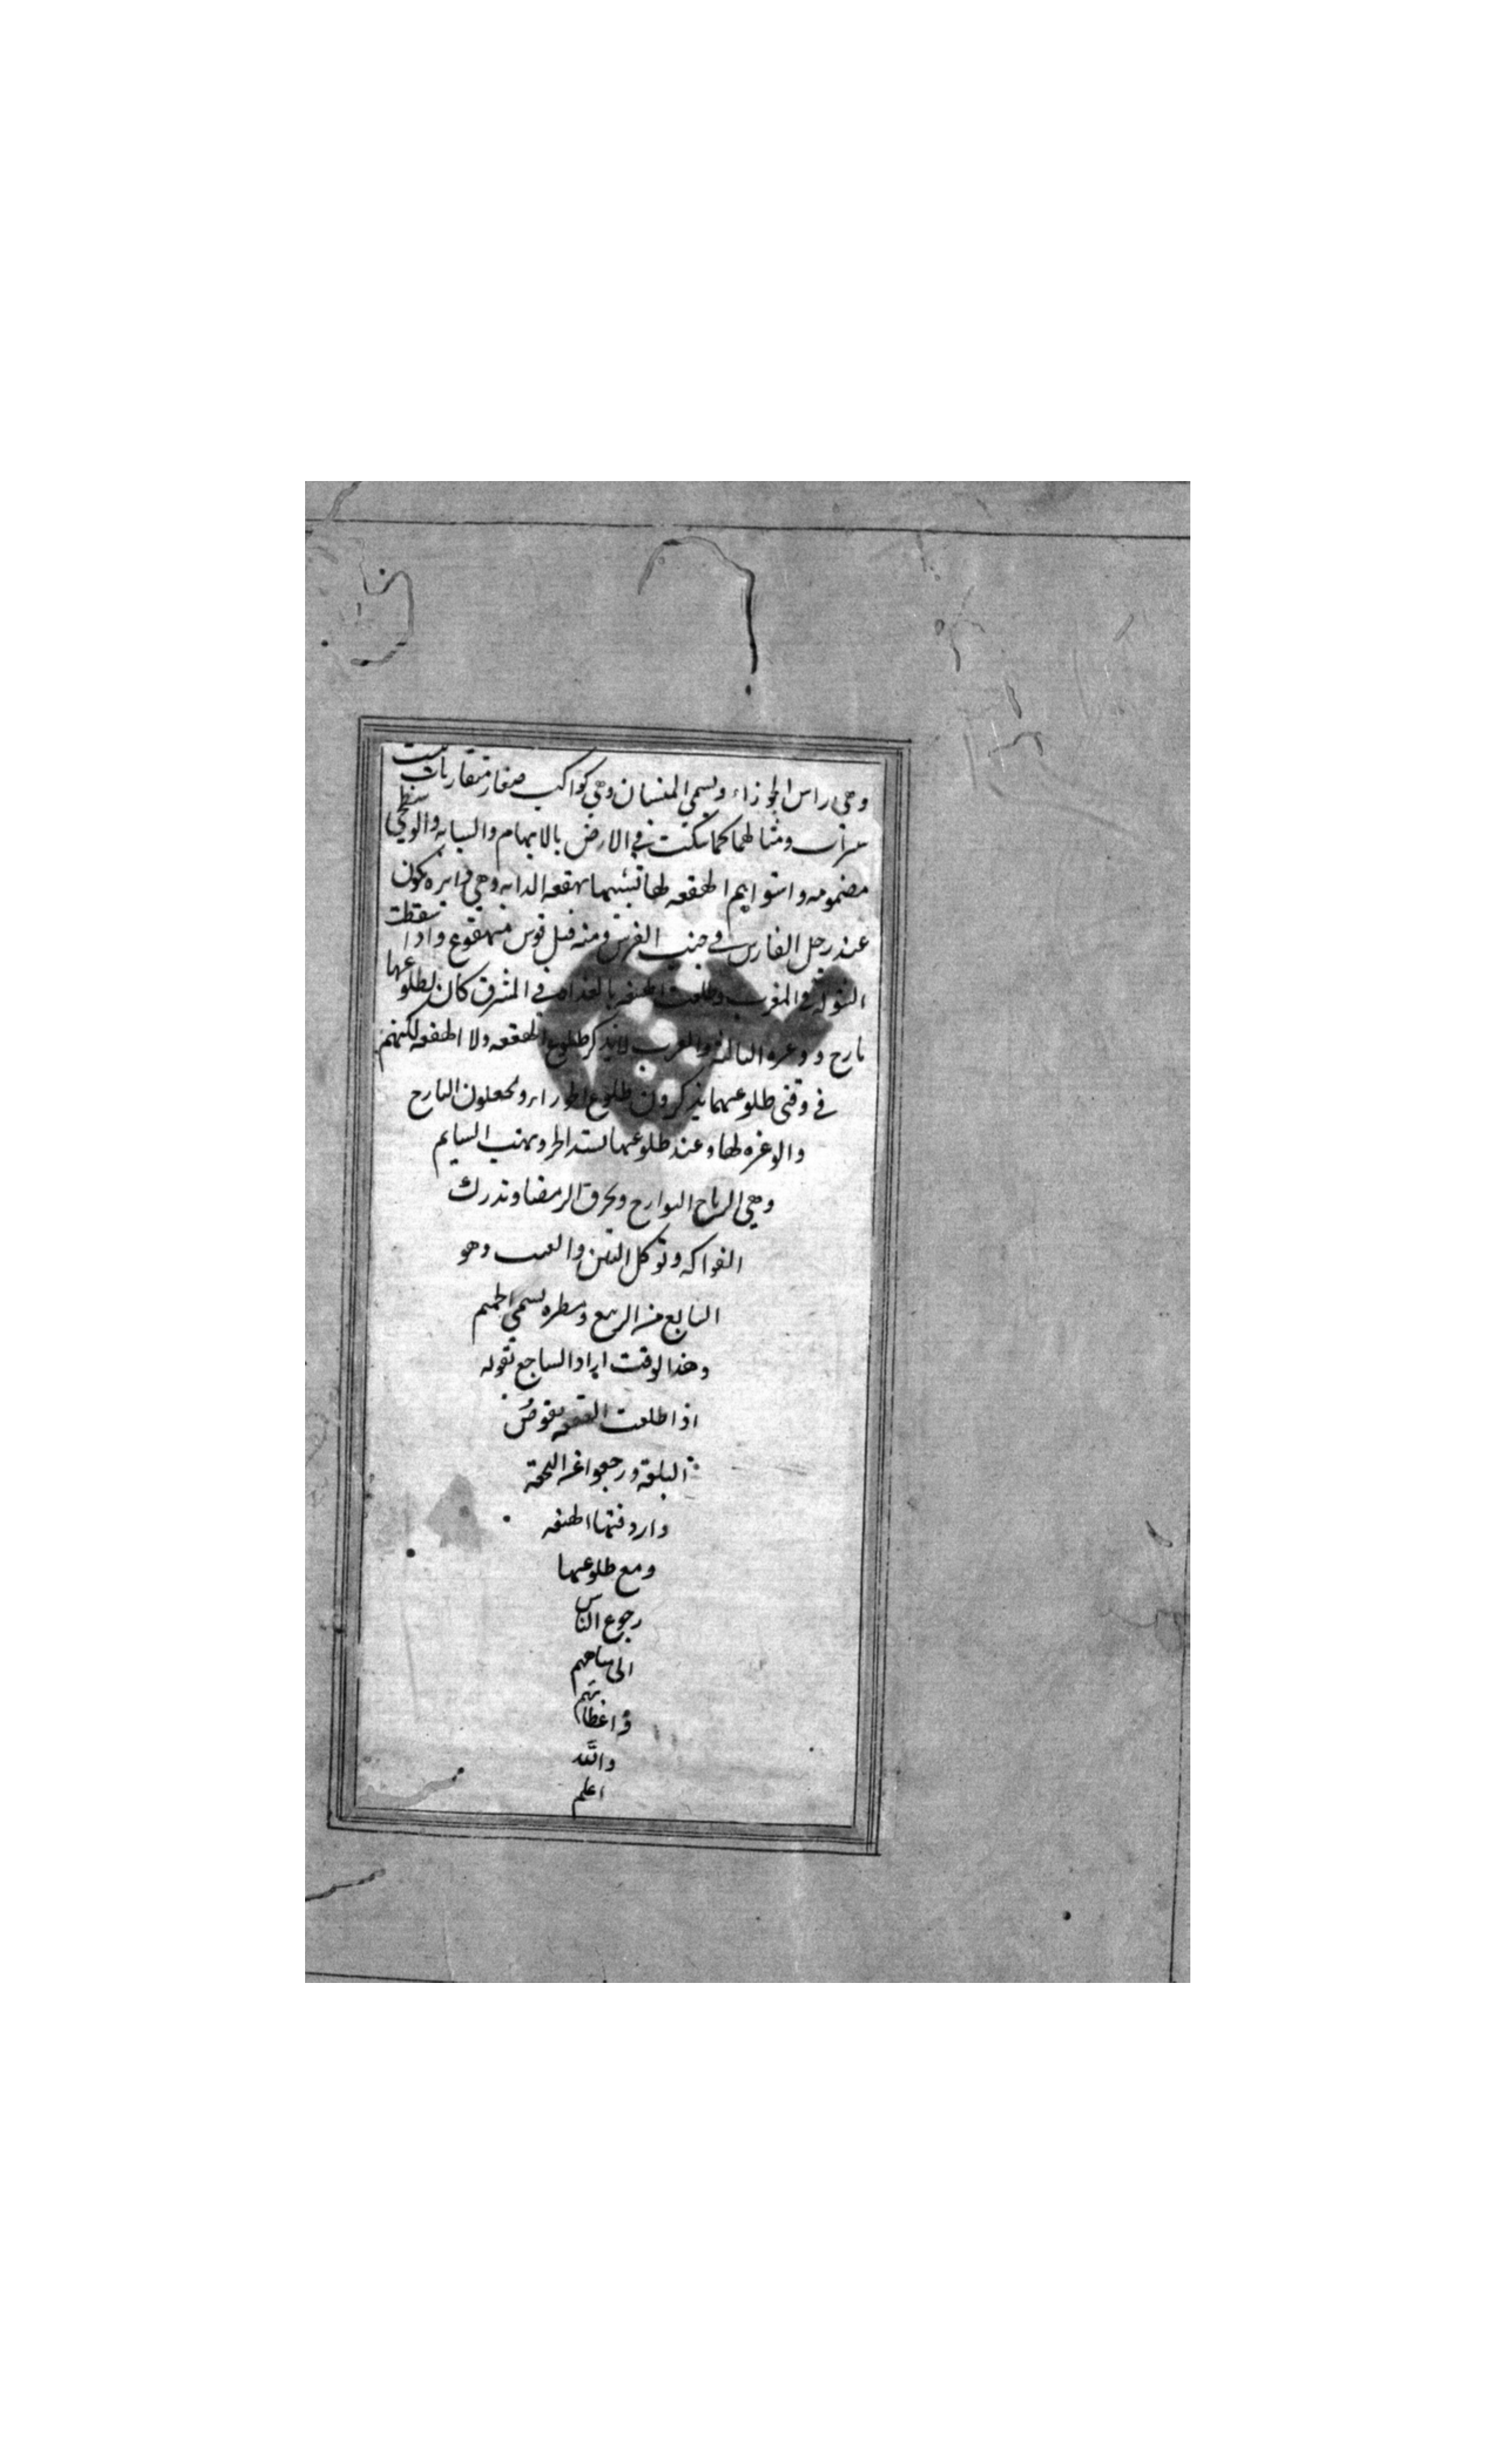 وهي راس الجوزاء ويسمي المنسان وهي كواكب صغار متقاربات
ومثالهما كما نكتت في الارض بالابهام والسبابه والوسطي
مضمومه الهقعه لها تشبيها بهقعه الدابه وهي دائره تكون
عند رجل الفارس في جنب الفرس ومنه قيل فرس مهقوع واذا سقطت
الشوله في المغرب وطلعت الهقعه بالغداه في المشرق كان لطلوعها
بارح والعرب لا يذكر طلوع الهقعه ولا الهنعه لكنهم
في وقتي طلوعهما يذكرون طلوع الجوزاء ويجعلون البارح
والوغره لها وعند طلوعها يشتد الحر ويهب السمايم
وهي الرياح البوارح ويحرق الرمضا وتدرك
الفواكه وتوكل التين والعنب وهو
السابع من الربيع ومطره يسمي الحميم
وهذا الوقت اراد الساجع بقوله
اذا طلعت الهقعه تقوض
ورجعوا عن النجعة
واردفتها الهنعه
ومع طلوعها
رجوع الناس
الي مياههم
واعطانهم
والله
اعلم